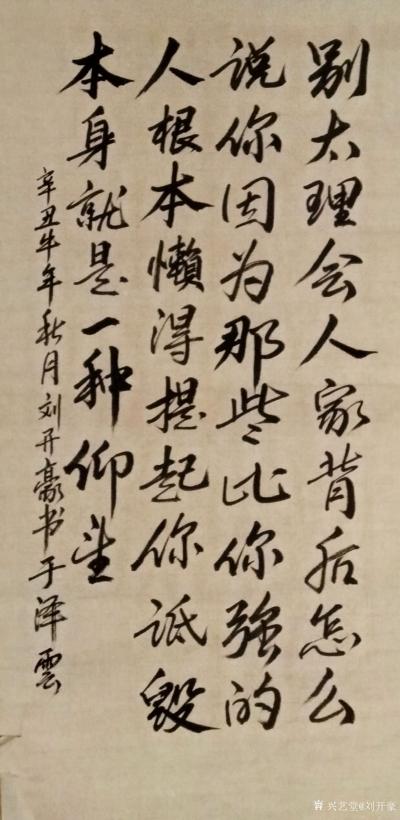 别太理会人家背后怎么
说你因为那些比你强的
人根本懒得提起你诋毁
本身就是一种仰望
辛丑牛年秋月刘开豪书于泽雲
兴艺堂@刘开豪